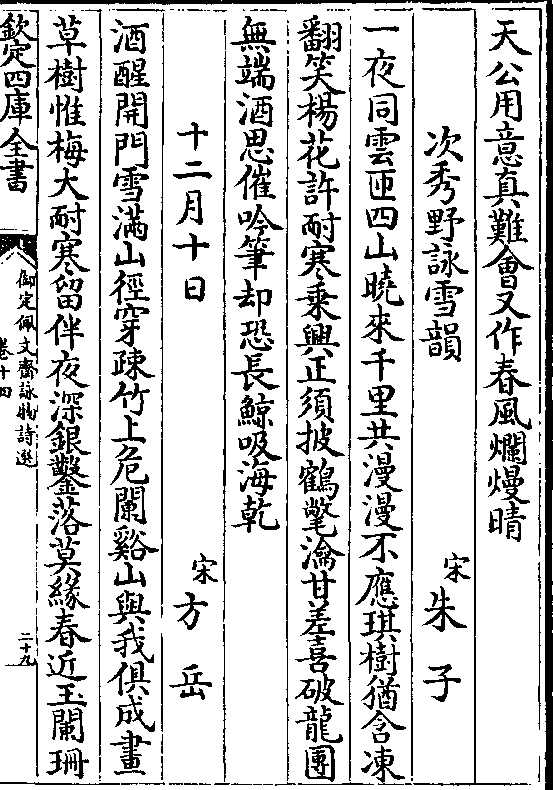 天公用意真難會又作春風爛熳晴
次秀野詠雪韻
宋朱子
一夜同雲匝四山曉來千里共漫漫不應琪樹猶含凍
翻笑楊花許耐寒乘興正須披鶴氅瀹甘差喜破龍團
無端酒思催吟筆却恐長鯨吸海乾
十二月十日
宋方岳
酒醒開門雪滿山徑穿疎竹上危闌谿山與我俱成畫
草樹惟梅大耐寒留伴夜深銀鑿落莫緣春近玉闌珊
欽定四庫全書
御定佩文齋詠物詩選
卷十四
二十九